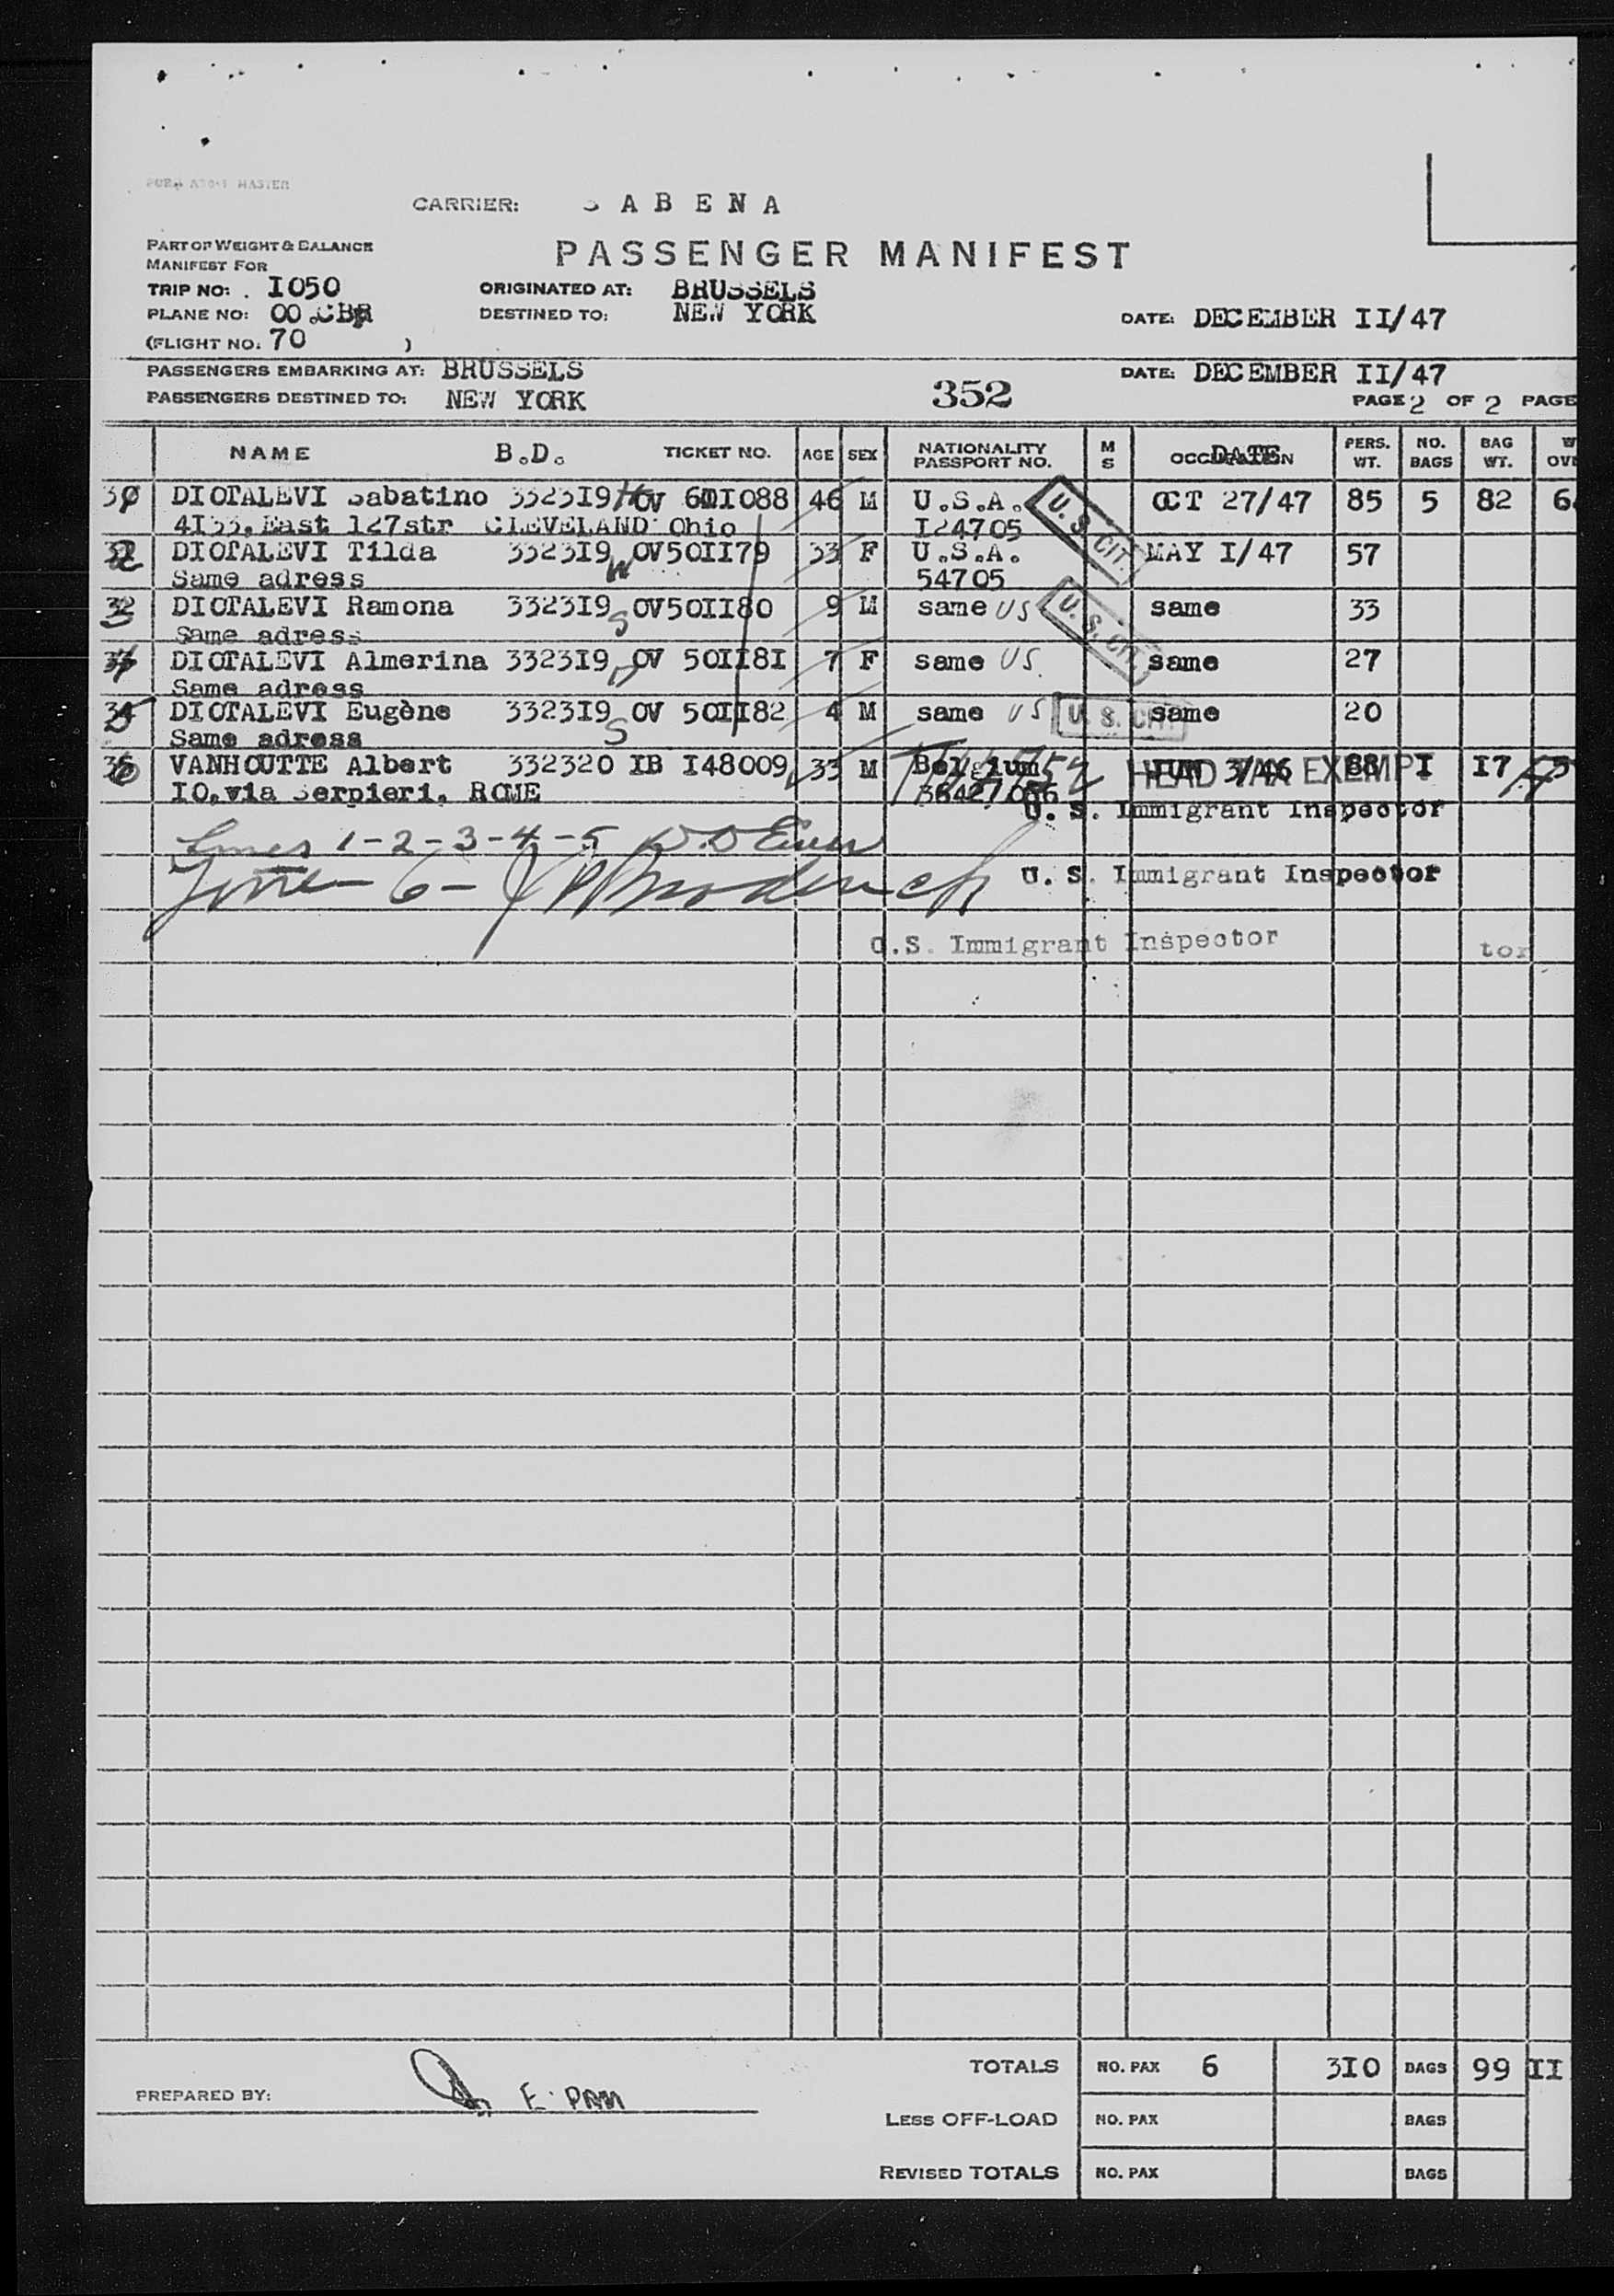 CARRIER: S A B E N A
PART OF WEIGHT & BALANCE
MANIFEST FOR
PASSENGER MANIFEST
TRIP NO: . I050 ORIGINATED AT: BRUSSELS
PLANE NO: OO.CBR DESTINED TO: NEW YORK DATE: DECEMBER II/47
(FLIGHT NO: 70 )
PASSENGERS EMBARKING AT: BRUSSELS DATE: DECEMBER II/47
PASSENGERS DESTINED TO: NEW YORK 352 PAGE 2 OF 2 PAGE
NAME B.D. TICKET NO. AGE SEX NATIONALITY PASSPORT NO. M S DATE PERS. WT. NO. BAGS BAG WT. W OVE
DIOTALEVI Sabatino 332319 OV 60I1088 46 M U.S.A. U.S. CIT. OCT 27/47 85 5 82
4I33, East 127str CLEVELAND Ohio I24705
DIOTALEVI Tilda 332319 W OV50II79 33 F U.S.A. MAY I/47 57
Same adress 54705
DIOTALEVI Ramona 332319 S OV50II80 9 M same US U.S. CIT. same 33
Same adress
DIOTALEVI Almerina 332319 OV 50II8I 7 F same US same 27
Same adress
DIOTALEVI Eugène 332319 S OV 50II82 4 M same US U.S. CIT. same 20
Same adress
VANHOUTTE Albert 332320 IB I48009 33 M Belgium JUN 3/46 HEAD TAX EXEMPT 88 I I7
IO, via Serpieri, ROME
U. S. Immigrant Inspector
Lines 1-2-3-4-5
Line 6-
U. S. Immigrant Inspector
U.S. Immigrant Inspector tor
TOTALS NO. PAX 6 3I0 BAGS 99 II
PREPARED BY: E. PAM
LESS OFF-LOAD NO. PAX BAGS
REVISED TOTALS NO. PAX BAGS